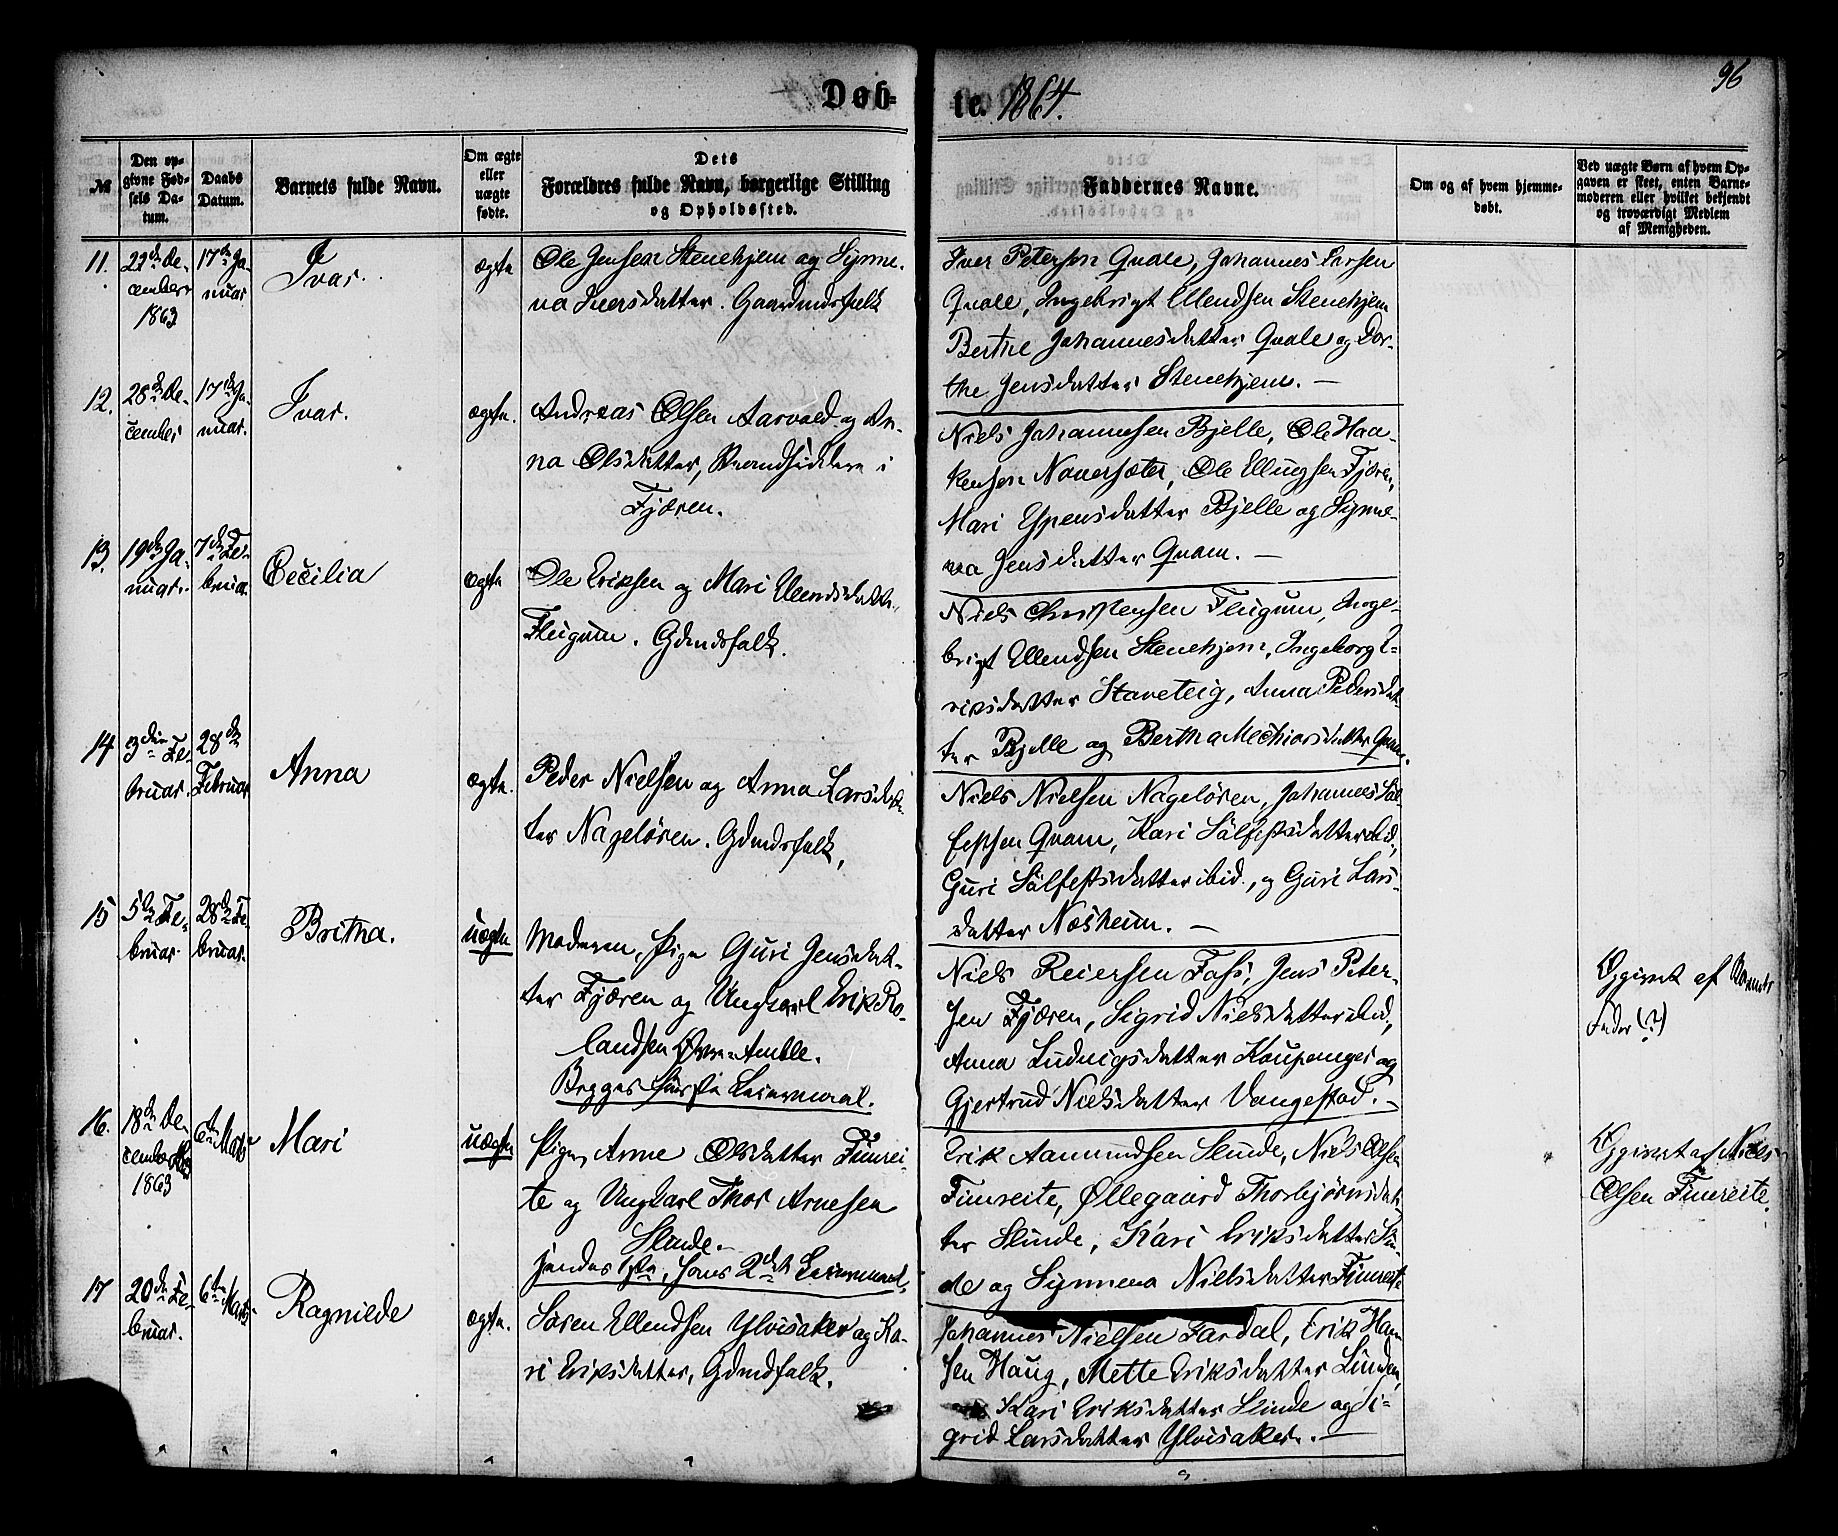 96
Døb-te. 1864.
№
Den op-
givne Fød-
sels Da-
tum.
Daabs
Datum.
Barnets fulde Navn.
Om ægte
eller
uægte
fødte.
Dets
Forældres fulde Navn, borgerlige Stilling
og Opholdssted.
Faddernes Navne.
Om og af hvem hjemme-
døbt.
Ved uægte Børn af hvem Op-
gaven er skeet, enten Barne-
moderen eller hvilket bekjendt
og troværdigt Medlem
af Menigheden.
11.
22de De-
cember
1863
17de Ja-
nuar
Ivar.
ægte
Ole Jensen Stenehjem og Synne-
va Iversdatter. Gaardmdsfolk
Iver Petersen Quale, Johannes Larsen
Quale, Ingebrigt Ellendsen Stenehjem
Berthe Johannesdatter Quale og Dor-
the Jensdatter Stenehjem. —
12.
28de De-
cember
17de Ja-
nuar.
Ivar.
ægte.
Andreas Olsen Aarvold og An-
na Olsdatter, Strandsiddere i
Fjæren.
Niels Johannesen Bjelle, Ole Haa-
kensen Noversæter, Ole Ellingsen Fjæren,
Mari Espensdatter Bjelle og Synne-
va Jensdatter Quam. —
13.
19de Ja-
nuar.
7de Fe-
bruar
Cecilia
ægte
Ole Eriksen og Mari Ellendsdatter
Flugum. Gdmdsfolk.
Niels Christensen Flugum, Inge-
brigt Ellendsen Stenehjem, Ingeborg E-
riksdatter Staveteig, Anna Pedersdat-
ter Bjelle og Bertha Mechiorsdatter Quam.
14
3die Fe-
bruar.
28de
Februar
Anna
ægte.
Peder Nielsen og Anna Larsdat-
ter Nageløren. Gdmdsfolk,
Niels Nielsen Nageløren, Johannes Sal-
festsen Quam, Kari Sålfestsdatter ibid,
Guri Sålfestsdatter ibid., og Guri Lars-
datter Næsheim. —
15
5te Fe-
bruar.
28de Fe-
bruar.
Britha.
uægte
Moderen, Pige Guri Jensdat-
ter Fjæren og Ungkarl Erik Ro-
landsen Øvre-Amble.
Begges første Leiermaal.
Niels Reiersen Foss, Jens Peter-
sen Fjæren, Sigrid Nielsdatter ibid,
Anna Ludvigsdatter Kaupanger og
Gjertrud Nielsdatter Vangestad. —
Opgivet af Barnets
Fader (?)
16.
18de De-
cember
1863
6te Marts
Mari
uægte
Pigen Anne Olsdatter Fimrei-
te og Ungkarl Thor Arnesen
Slinde.
hendes 1ste, hans 2det Leiermaal.
Erik Aamundsen Slinde, Niels Olsen
Fimreite, Øllegaard Thorbjørnsdat-
ter Slinde, Kari Eriksdatter Slin-
de og Synneva Nielsdatter Fimreite
Opgivet af Niels
Olsen Fimreite.
17
20de Fe-
bruar.
6te Marts
Ragnilde
ægte.
Søren Ellendsen Ylvisaker og Ka-
ri Eriksdatter, Gdmdfolk.
Johannes Nielsen Gardal, Erik Han-
sen Haug, Mette Eriksdatter Linden,
Kari Eriksdatter Slinde og Si-
grid Larsdatter Ylvisaker. —